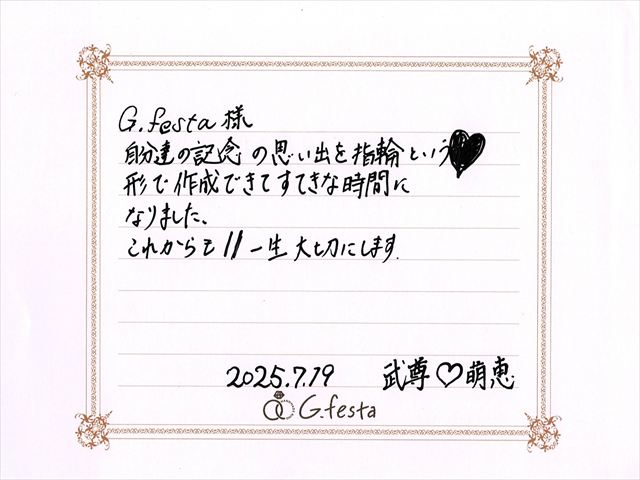 G.festa 様
自分達の記念の思い出を指輪という
形で作成できてすてきな時間に
なりました、
これからも // 一生大切にします.
2025.7.19 武尊♡萌恵
G.festa